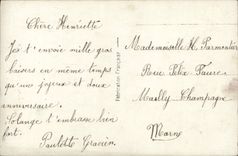 Chère Henriette
Je t'envoie mille gros
baisers en même temps
qu'un joyeux et doux
anniversaire.
Solange t'embrasse bien
fort.
Paulette Gracien.
Fabrication Française
Mademoiselle H. Parmentier
Rue Félix Faure
Mailly Champagne
Marne